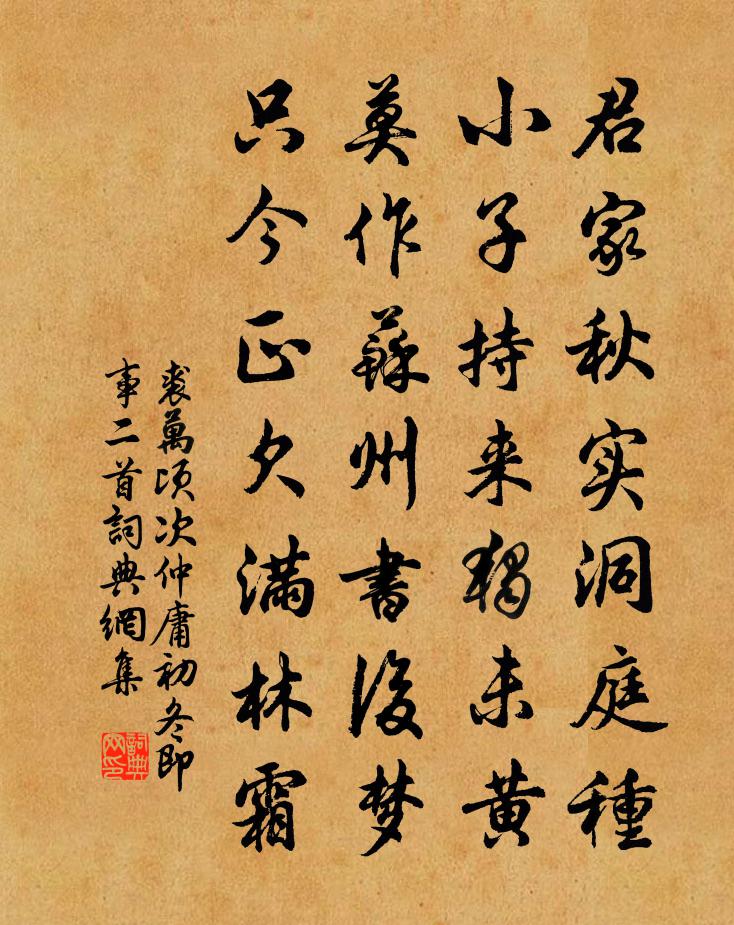 君家秋实洞庭種
小子持来獨未黄
莫作蘇州書後梦
只今正欠满林霜
裘萬頃次仲庸初冬即
事二首詞典網集
詞典网印